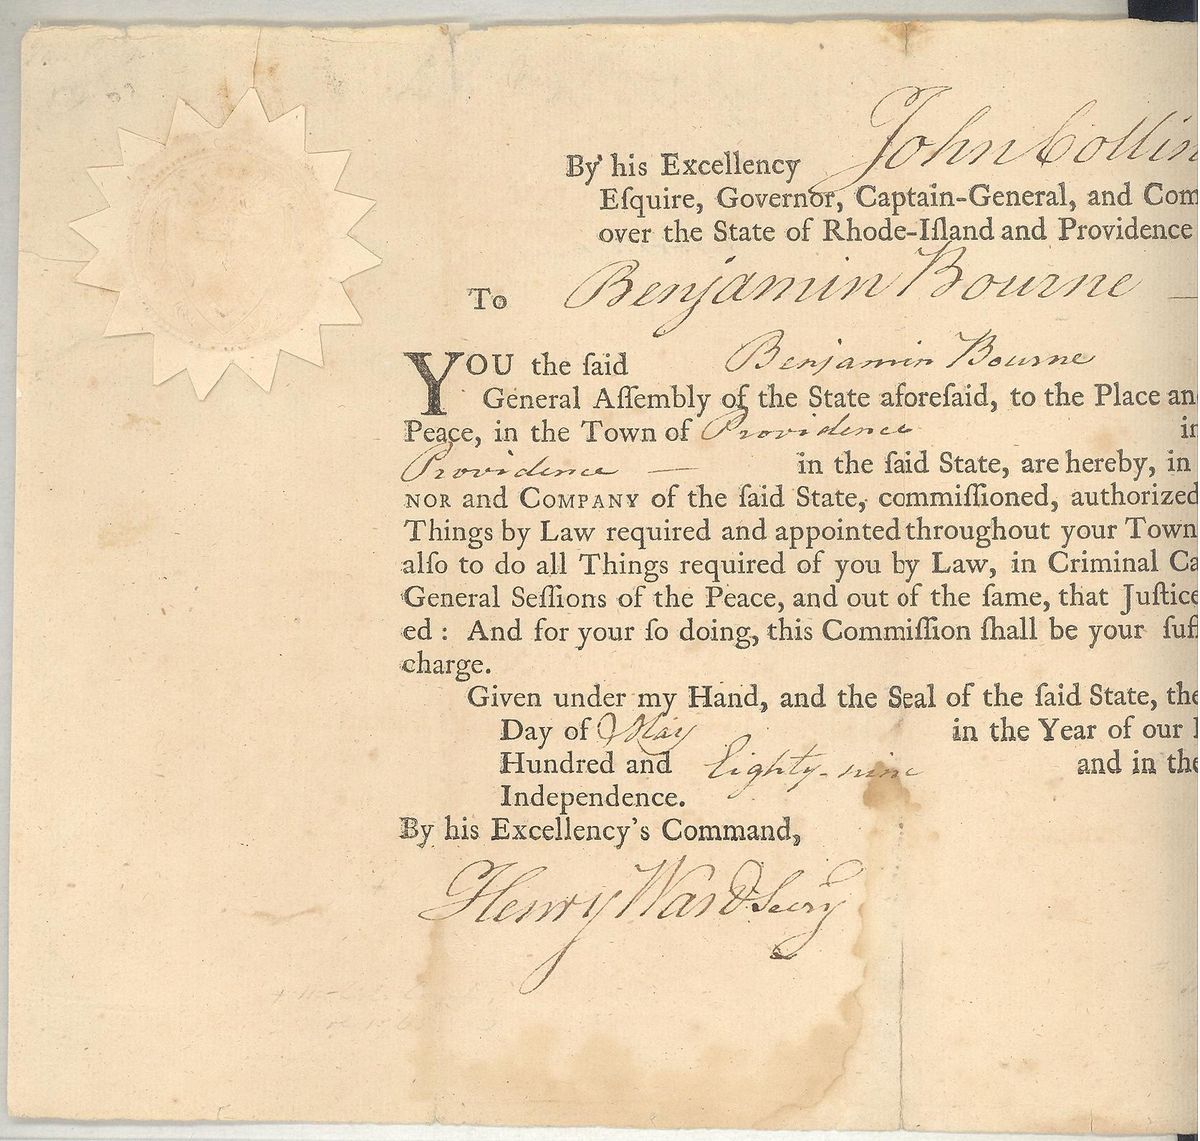 By his Excellency John Collin
Eſquire, Governor, Captain-General, and Com
over the State of Rhode-Iſland and Providence
To Benjamin Bourne —
YOU the ſaid Benjamin Bourne
General Aſſembly of the State aforeſaid, to the Place an
Peace, in the Town of Providence in
Providence — in the ſaid State, are hereby, in
NOR and COMPANY of the ſaid State, commiſſioned, authorized
Things by Law required and appointed throughout your Town
alſo to do all Things required of you by Law, in Criminal Ca
General Seſſions of the Peace, and out of the ſame, that Juſtice
ed : And for your ſo doing, this Commiſſion ſhall be your ſuf
charge.
Given under my Hand, and the Seal of the ſaid State, the
Day of May in the Year of our
Hundred and Eighty-nine and in the
Independence.
By his Excellency's Command,
Henry Ward Secry